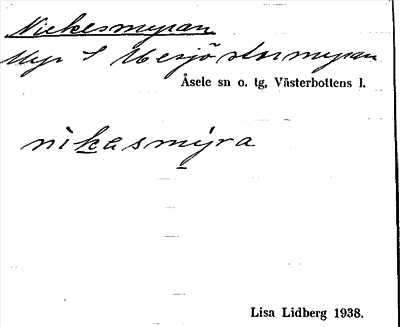 Nickesmyran
Myr S Mesjö stormyran
Åsele sn o. tg, Västerbottens l.
nikasmyra
Lisa Lidberg 1938.